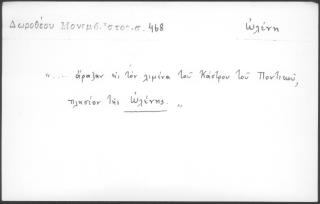 Δωροθέου Μονεμβ. Ἱστορ. σ. 468
Ὠλένη
"... ἄραξαν εἰς τὸν λιμένα τοῦ Κάστρου τοῦ Ποντικοῦ,
πλησίον τῆς Ὠλένης. „